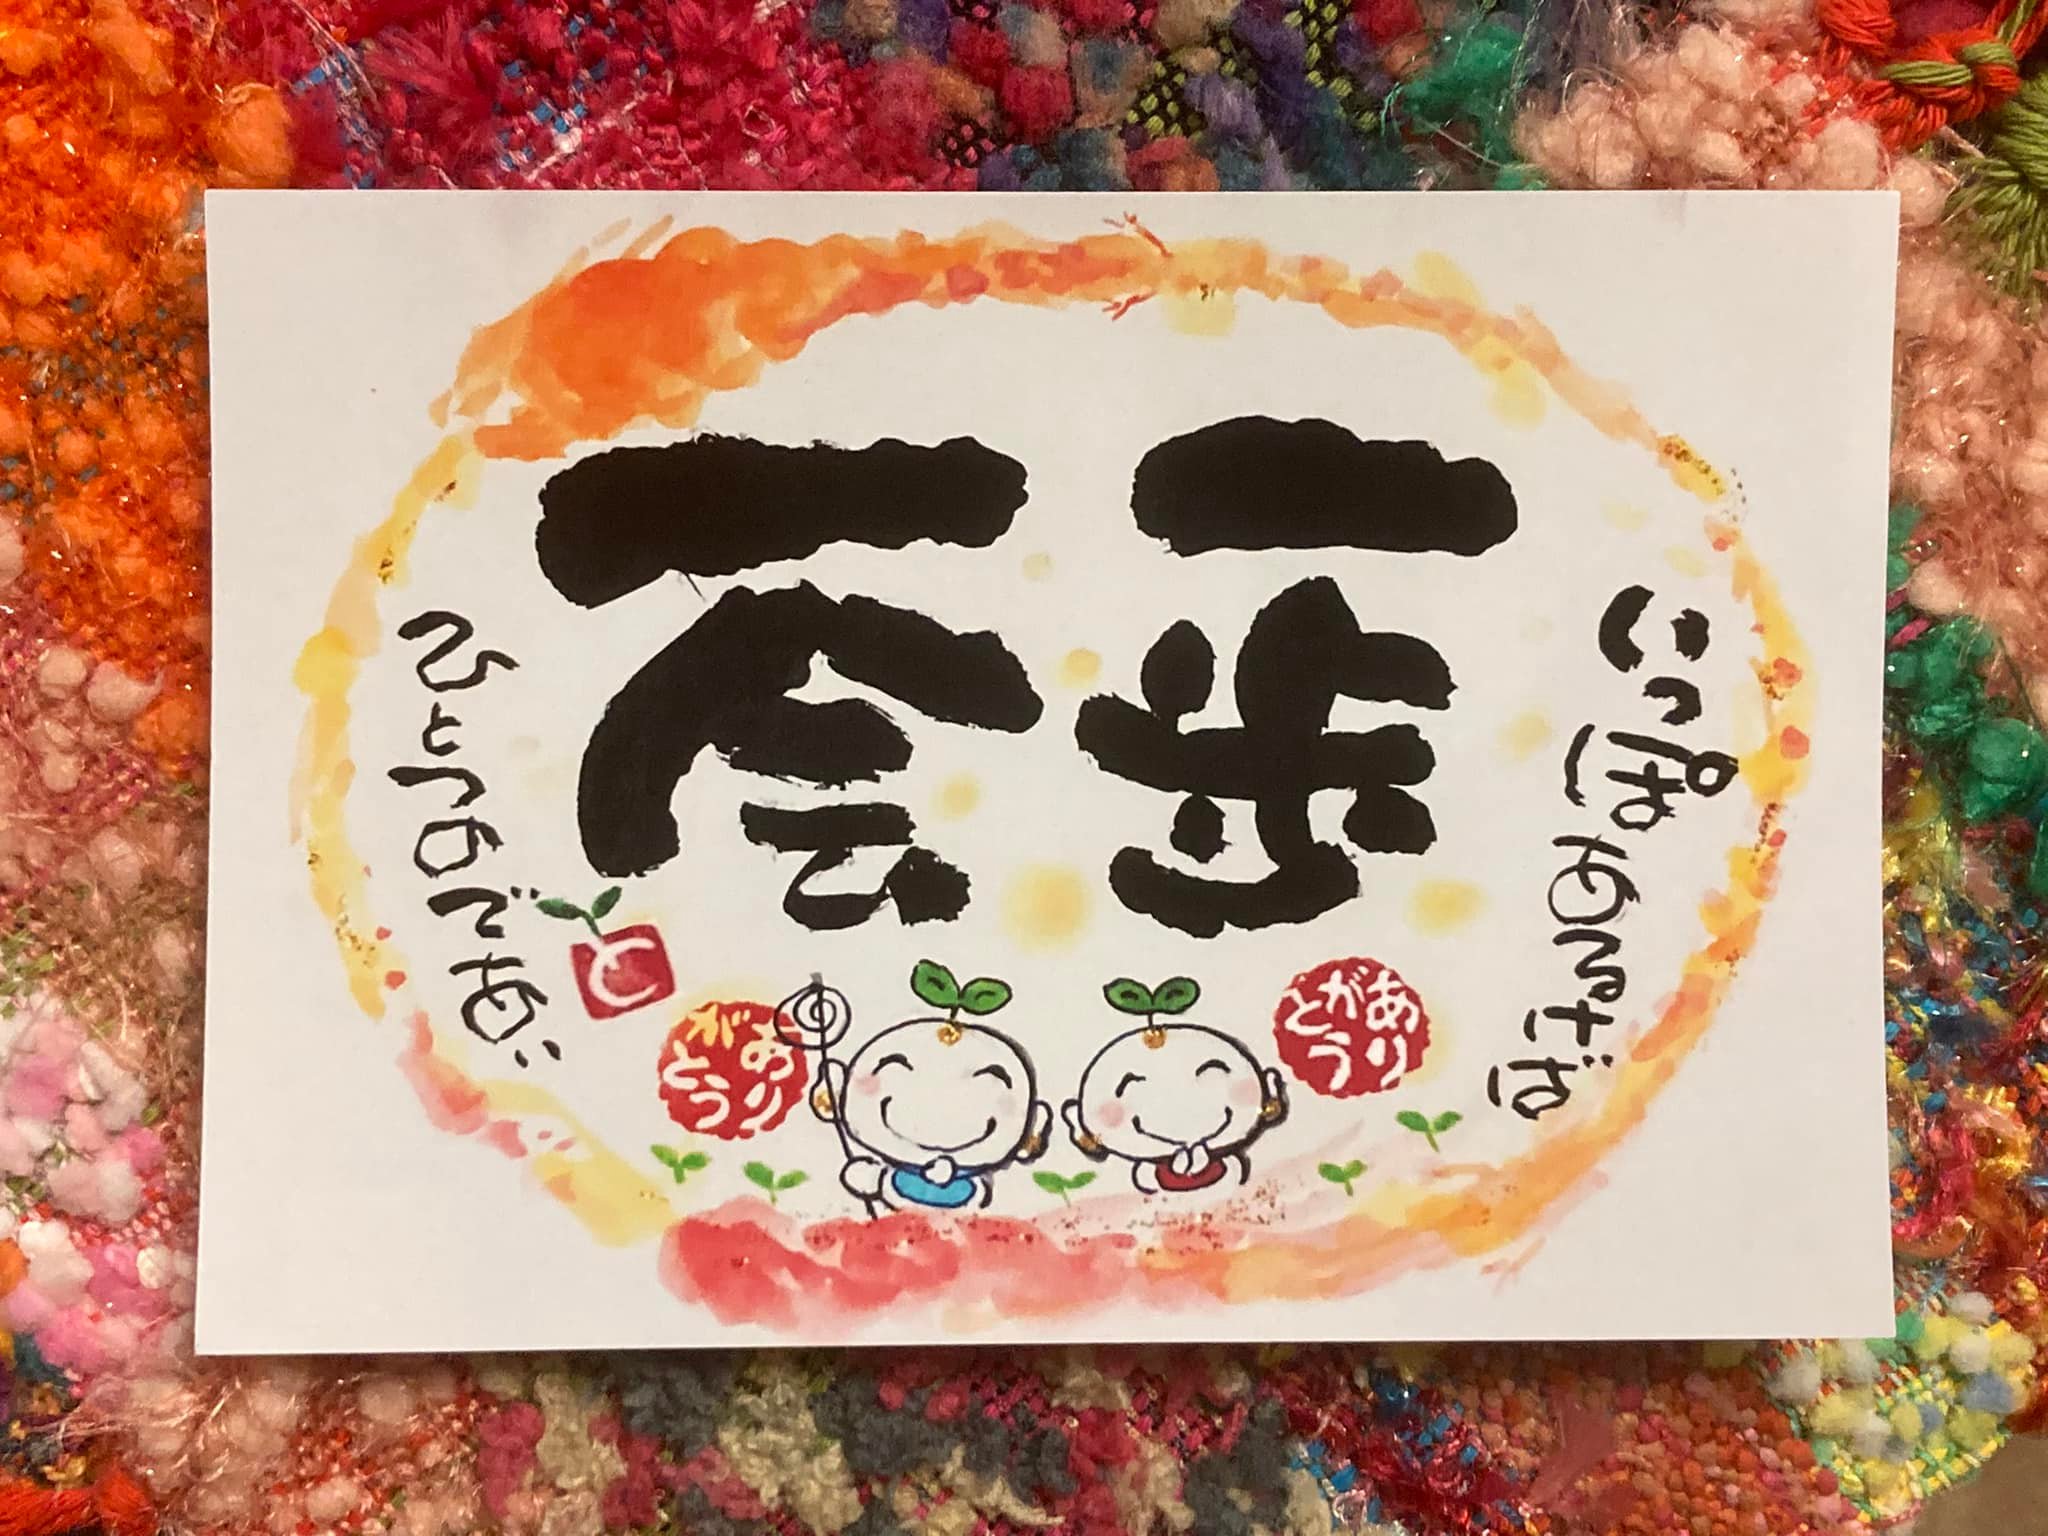 一歩
一会
いっぽあるけば
ひとつのであい
と
ありがとう
ありがとう